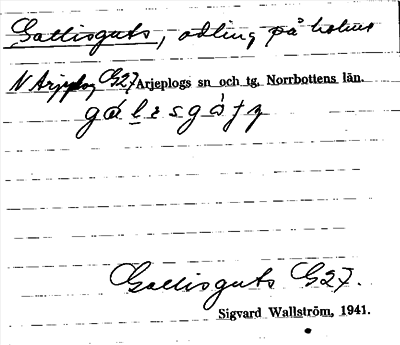 Gallisguts, odling på holme
N Arjeplog G27 Arjeplogs sn och tg, Norrbottens län.
Gallisguts G27.
Sigvard Wallström, 1941.